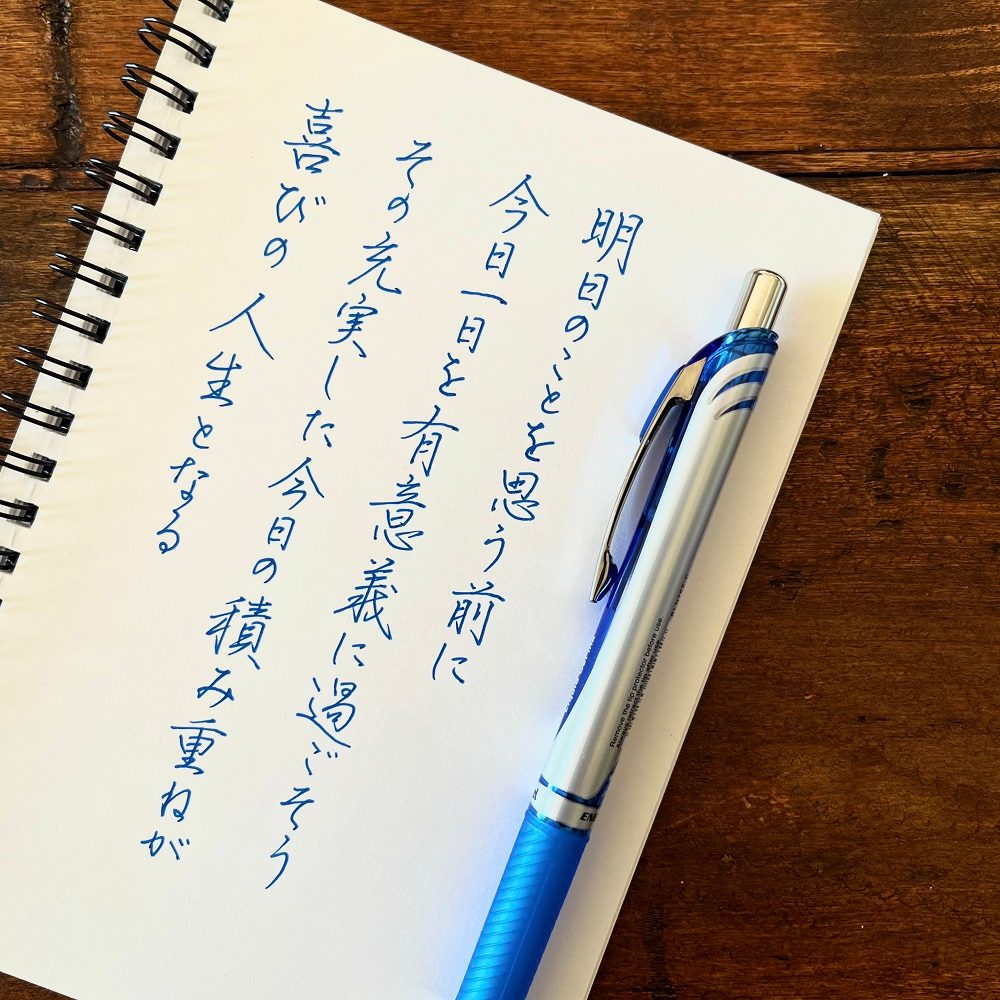 明日のことを思う前に
今日一日を有意義に過ごそう
その充実した今日の積み重ねが
喜びの人生となる
Remove the tip protector before use